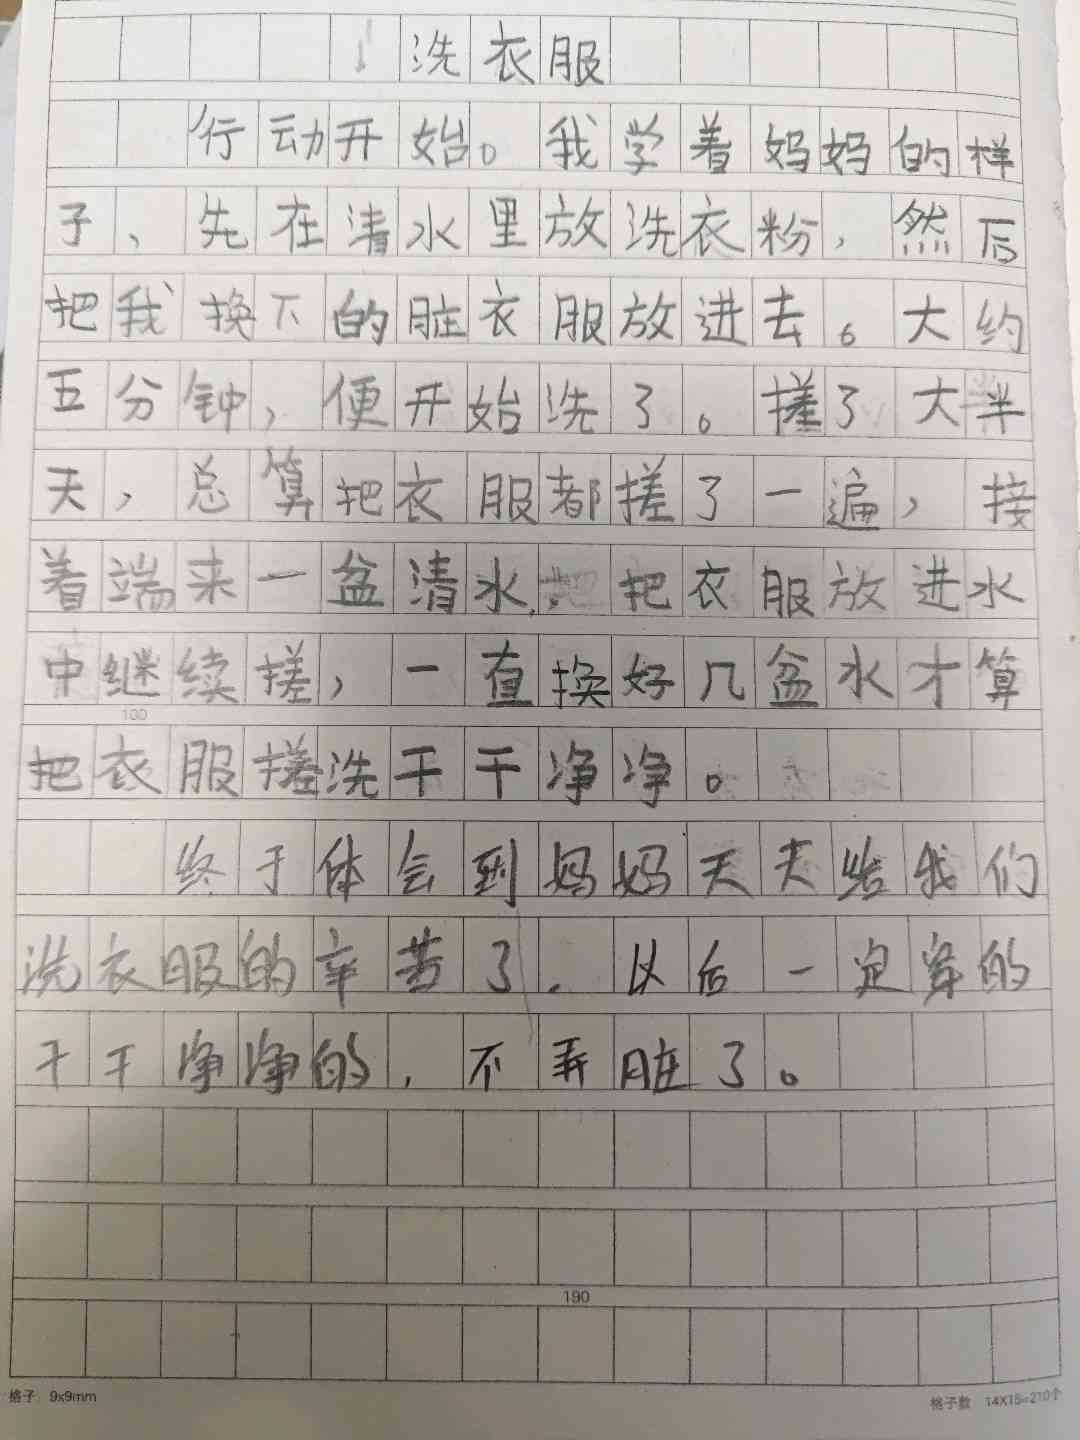 洗衣服
行动开始。我学着妈妈的样
子、先在清水里放洗衣粉，然后
把我换下的脏衣服放进去。大约
五分钟，便开始洗了。搓了大半
天，总算把衣服都搓了一遍，接
着端来一盆清水，把衣服放进水
中继续搓，一直换好几盆水才算
100
把衣服搓洗干干净净。
终于体会到妈妈天天给我们
洗衣服的辛苦了．以后一定穿的
干干净净的，不弄脏了。
190
格子：9x9mm
格子数 14X15=210个